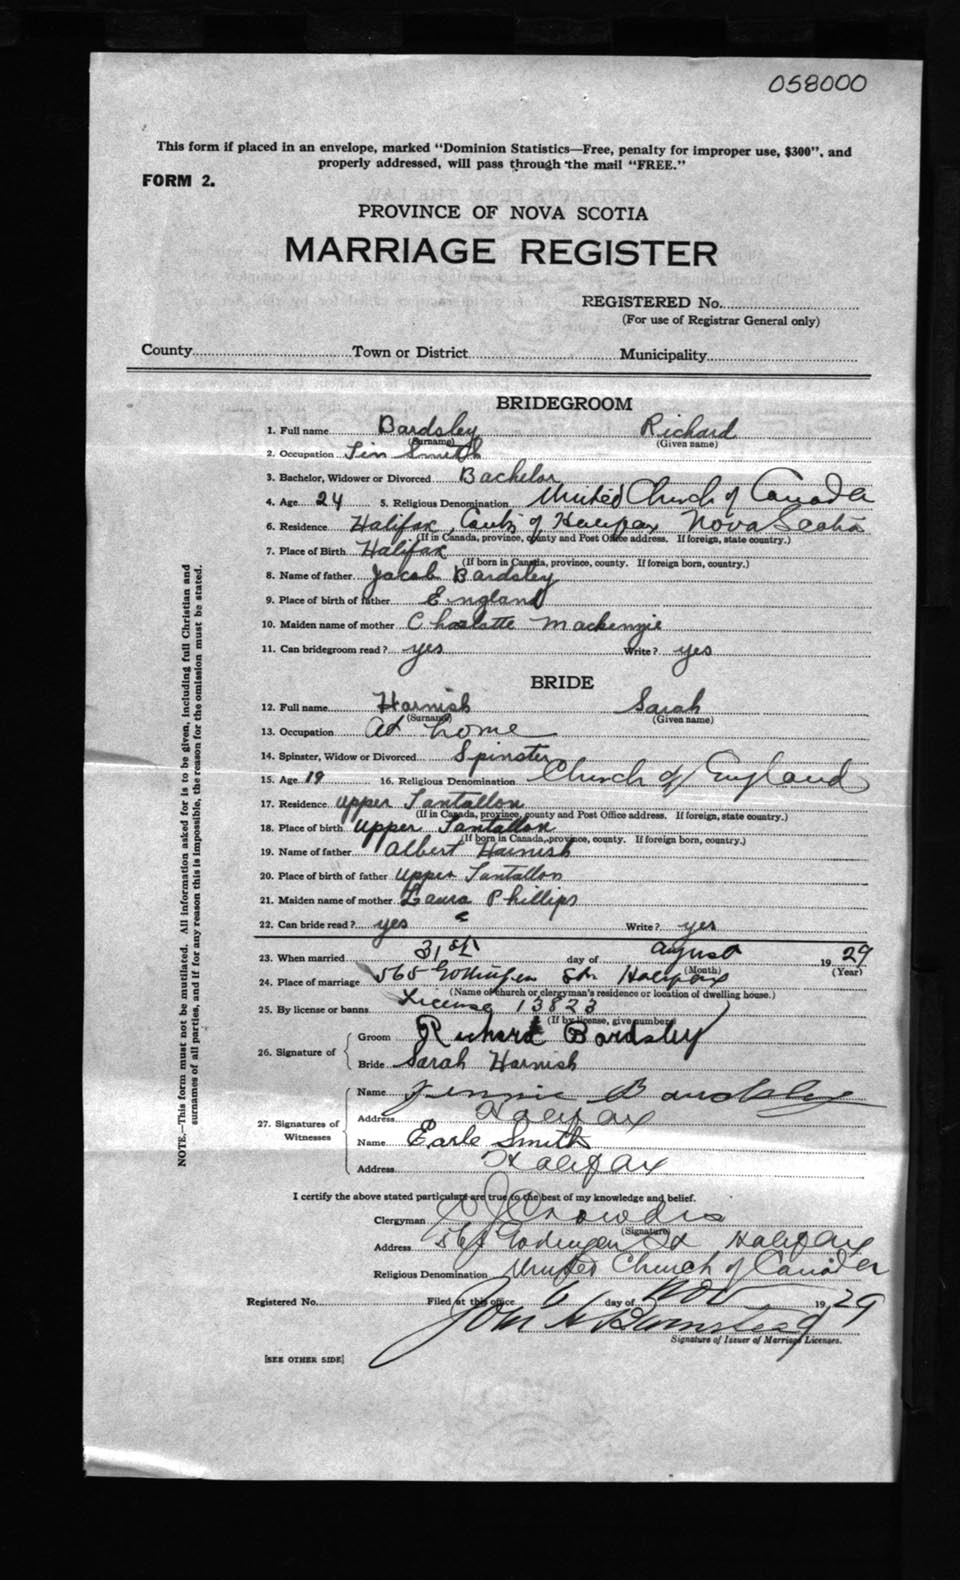 058000
This form if placed in an envelope, marked "Dominion Statistics—Free, penalty for improper use, $300", and
properly addressed, will pass through the mail "FREE."
FORM 2.
PROVINCE OF NOVA SCOTIA
MARRIAGE REGISTER
REGISTERED No.
(For use of Registrar General only)
County Town or District Municipality
BRIDEGROOM
1. Full name Bardsley Richard
(Surname) (Given name)
2. Occupation Tin Smith
3. Bachelor, Widower or Divorced Bachelor
4. Age 24 5. Religious Denomination United Church of Canada
6. Residence Halifax, County of Halifax Nova Scotia
(If in Canada, province, county and Post Office address. If foreign, state country.)
7. Place of Birth Halifax
(If born in Canada, province, county. If foreign born, country.)
8. Name of father Jacob Bardsley
9. Place of birth of father England
10. Maiden name of mother Charlotte Mackenzie
11. Can bridegroom read? yes Write? yes
BRIDE
12. Full name Harnish Sarah
(Surname) (Given name)
13. Occupation At home
14. Spinster, Widow or Divorced Spinster
15. Age 19 16. Religious Denomination Church of England
17. Residence Upper Tantallon
(If in Canada, province, county and Post Office address. If foreign, state country.)
18. Place of birth Upper Tantallon
(If born in Canada, province, county. If foreign born, country.)
19. Name of father Albert Harnish
20. Place of birth of father Upper Tantallon
21. Maiden name of mother Laura Phillips
22. Can bride read? yes Write? yes
23. When married 31st day of August 1929
(Month) (Year)
24. Place of marriage 565 Gottingen St. Halifax
(Name of church or clergyman's residence or location of dwelling house.)
25. By license or banns License 13823
(If by license, give number)
26. Signature of
Groom Richard Bardsley
Bride Sarah Harnish
27. Signatures of Witnesses
Name Jennie Bardsley
Address Halifax
Name Earle Smith
Address Halifax
I certify the above stated particulars are true to the best of my knowledge and belief.
Clergyman Crowdis
(Signature)
Address 565 Gottingen St Halifax
Religious Denomination United Church of Canada
Registered No. Filed at this office 6 day of Nov 1929
Signature of Issuer of Marriage Licenses.
[SEE OTHER SIDE]
NOTE.—This form must not be mutilated. All information asked for is to be given, including full Christian and
surnames of all parties, and if for any reason this is impossible, the reason for the omission must be stated.